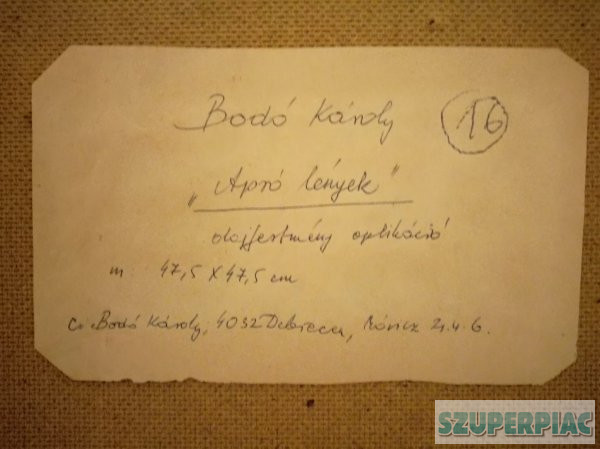 Bodó Károly
16
"Apró lények"
olajfestmény aplikáció
m 47,5 X 47,5 cm
C: Bodó Károly, 4032 Debrecen, Móricz Zs. 4. 6.
SZUPERPIAC